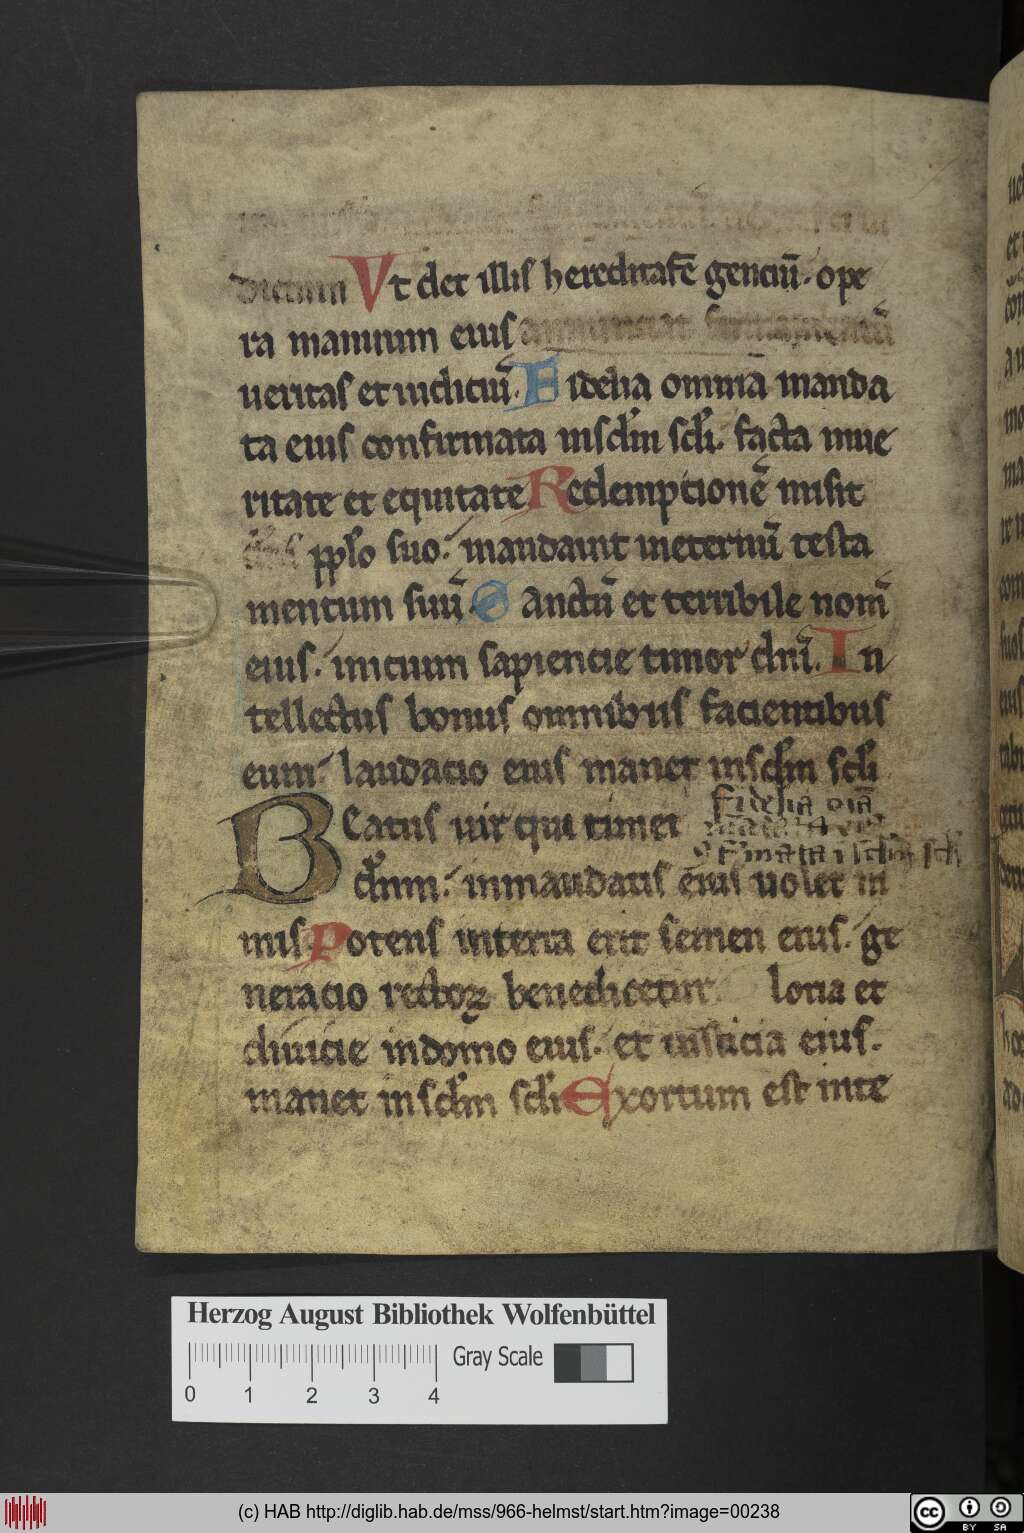 Vt det illis hereditatē genciū· ope
ra manuum eius
ueritas et iudiciū· Fidelia omniā manda
ta eius confirmata insclm scli. facta inue
ritate et equitate Redempcionē misit
pplo suo· mandauit ineternū testa
mentum suū· Sanctū et terribile nom̄
eius· inicium sapiencie timor dnī. In
tellectus bonus omnibus facientibus
eum· laudacio eius manet insclm scli
Beatus uir qui timet
fidelia oīa
dnm· inmandatis eius uolet ni
mis· Potens interra erit semen eius· ge
neracio rectoꝝ benedicetur loria et
diuicie indomo eius· et iusticia eius·
manet insclm scli Exortum est inte
Herzog August Bibliothek Wolfenbüttel
Gray Scale
0 1 2 3 4
(c) HAB http://diglib.hab.de/mss/966-helmst/start.htm?image=00238
cc BY SA